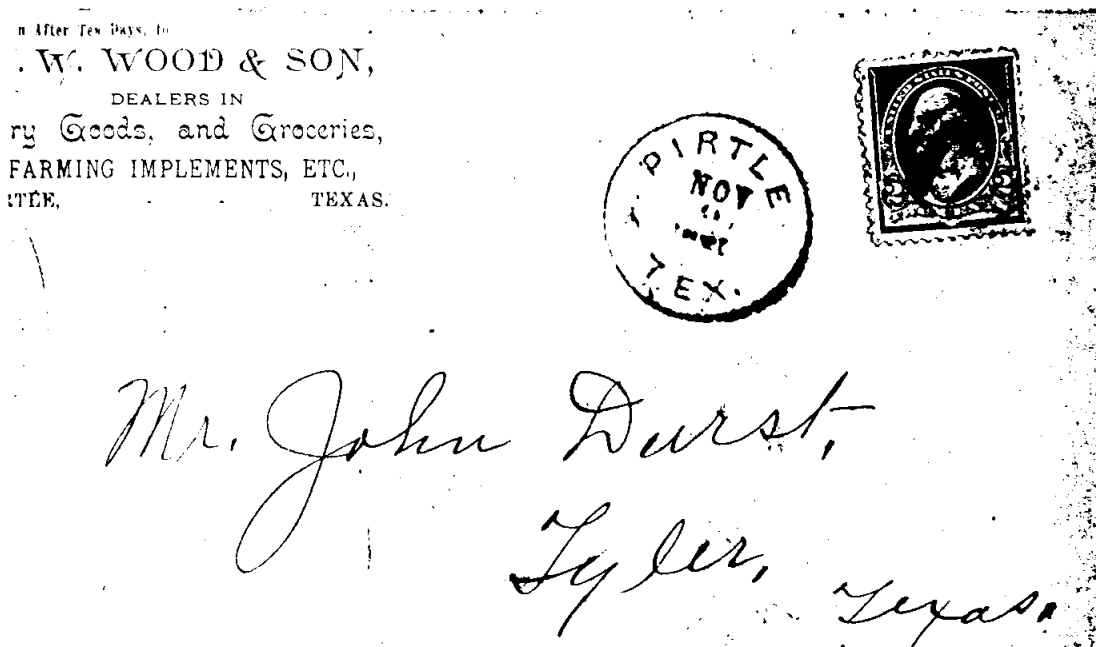 n After Ten Days, to
. W. WOOD & SON,
DEALERS IN
ry Goods, and Groceries,
FARMING IMPLEMENTS, ETC.,
RTLE, - - TEXAS.
PIRTLE
NOV
TEX.
UNITED STATES POSTAGE
2 2
Mr. John Durst,
Tyler,
Texas.